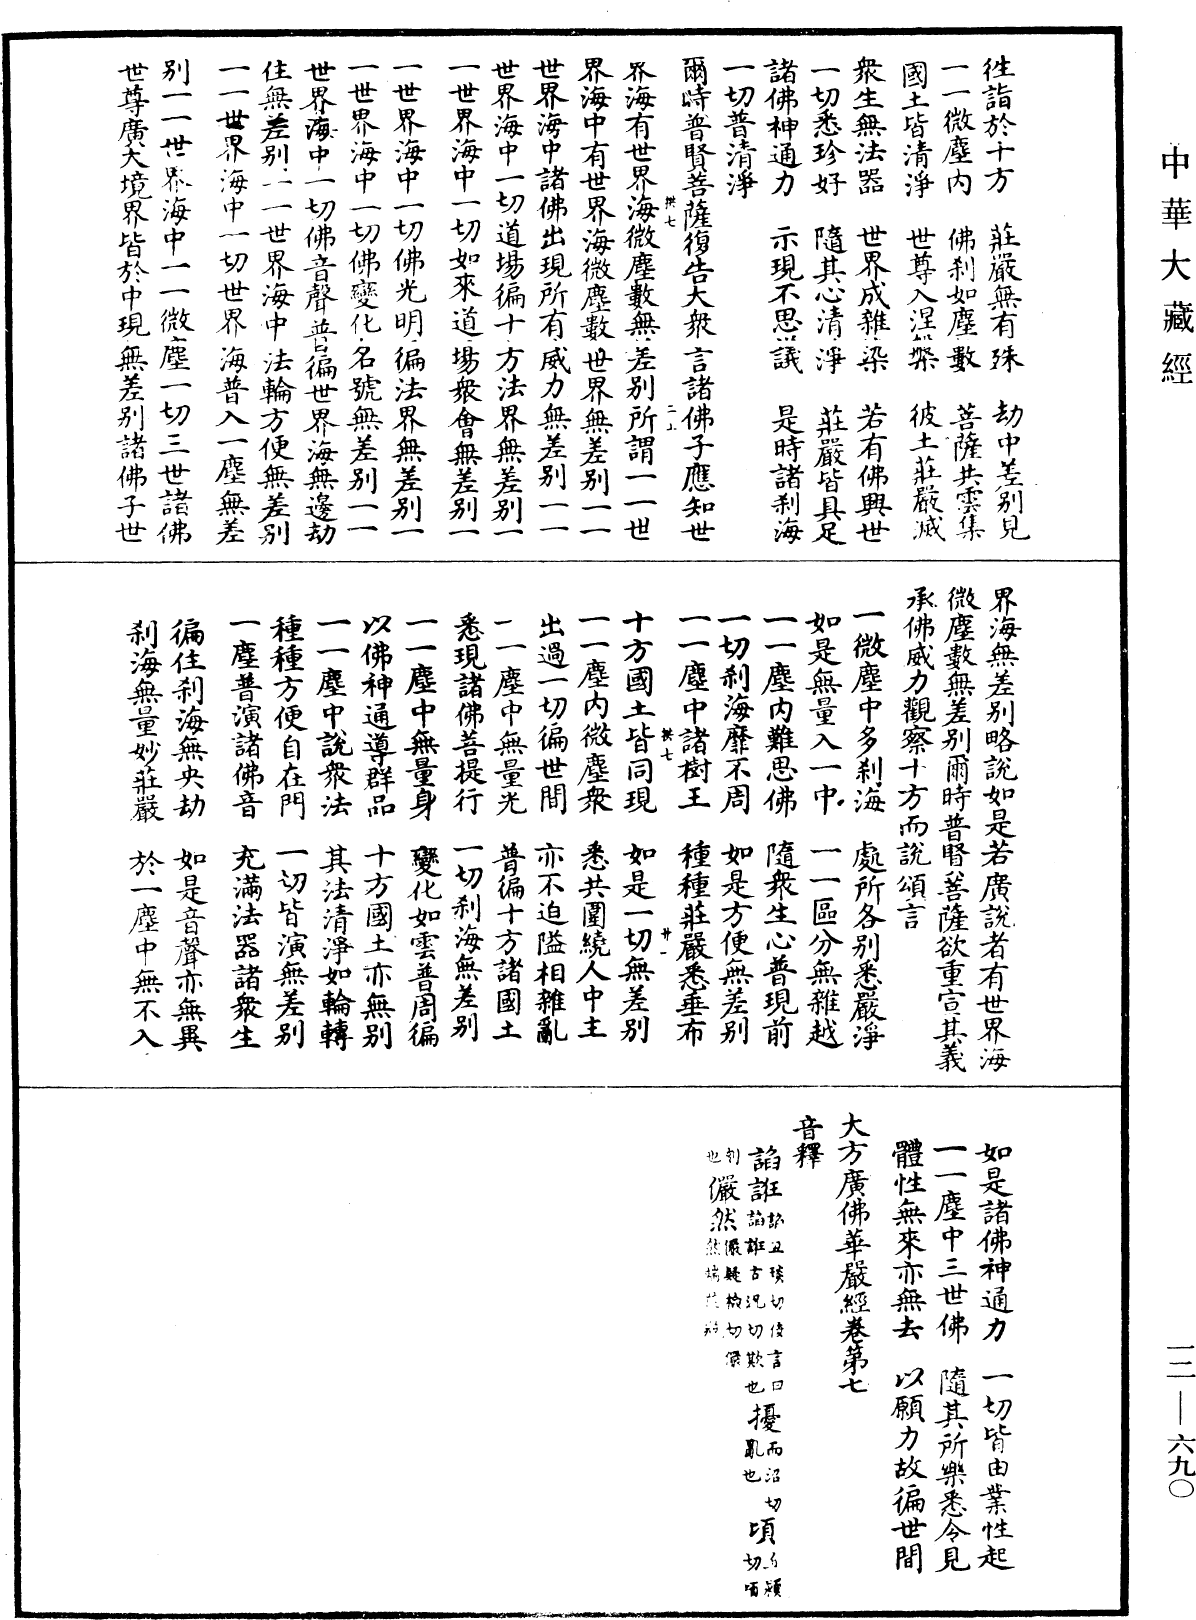 中華大藏經
徃詣於十方　莊嚴無有殊　劫中差別見
一一微塵內　佛刹如塵數　菩薩共雲集
國土皆清淨　世尊入涅槃　彼土莊嚴滅
衆生無法器　世界成雜染　若有佛興世
一切悉珍好　隨其心清淨　莊嚴皆具足
諸佛神通力　示現不思議　是時諸刹海
一切普清淨
爾時普賢菩薩復告大衆言諸佛子應知世
界海有世界海微塵數無差別所謂一一世
界海中有世界海微塵數世界無差別一一
世界海中諸佛出現所有威力無差別一一
世界海中一切道場徧十方法界無差別一
一世界海中一切如來道場衆會無差別一
一世界海中一切佛光明徧法界無差別一
一世界海中一切佛變化名號無差別一一
世界海中一切佛音聲普徧世界海無邊劫
住無差別一一世界海中法輪方便無差別
一一世界海中一切世界海普入一塵無差
別一一世界海中一一微塵一切三世諸佛
世尊廣大境界皆於中現無差別諸佛子世
界海無差別略說如是若廣說者有世界海
微塵數無差別爾時普賢菩薩欲重宣其義
承佛威力觀察十方而說頌言
一微塵中多刹海　處所各別悉嚴淨
如是無量入一中　一一區分無雜越
一一塵內難思佛　隨衆生心普現前
一切刹海靡不周　如是方便無差別
一一塵中諸樹王　種種莊嚴悉垂布
十方國土皆同現　如是一切無差別
一一塵內微塵衆　悉共圍繞人中主
出過一切徧世間　亦不迫隘相雜亂
一一塵中無量光　普徧十方諸國土
悉現諸佛菩提行　一切刹海無差別
一一塵中無量身　變化如雲普周徧
以佛神通導群品　十方國土亦無別
一一塵中說衆法　其法清淨如輪轉
種種方便自在門　一切皆演無差別
一塵普演諸佛音　充滿法器諸衆生
徧住刹海無央劫　如是音聲亦無異
刹海無量妙莊嚴　於一塵中無不入
如是諸佛神通力　一切皆由業性起
一一塵中三世佛　隨其所樂悉令見
體性無來亦無去　以願力故徧世間
大方廣佛華嚴經卷第七
音釋
諂誑 諂丑琰切佞言曰諂誑古況切欺也 擾 而沼切亂也 頃 切
儼然
一二—六九〇